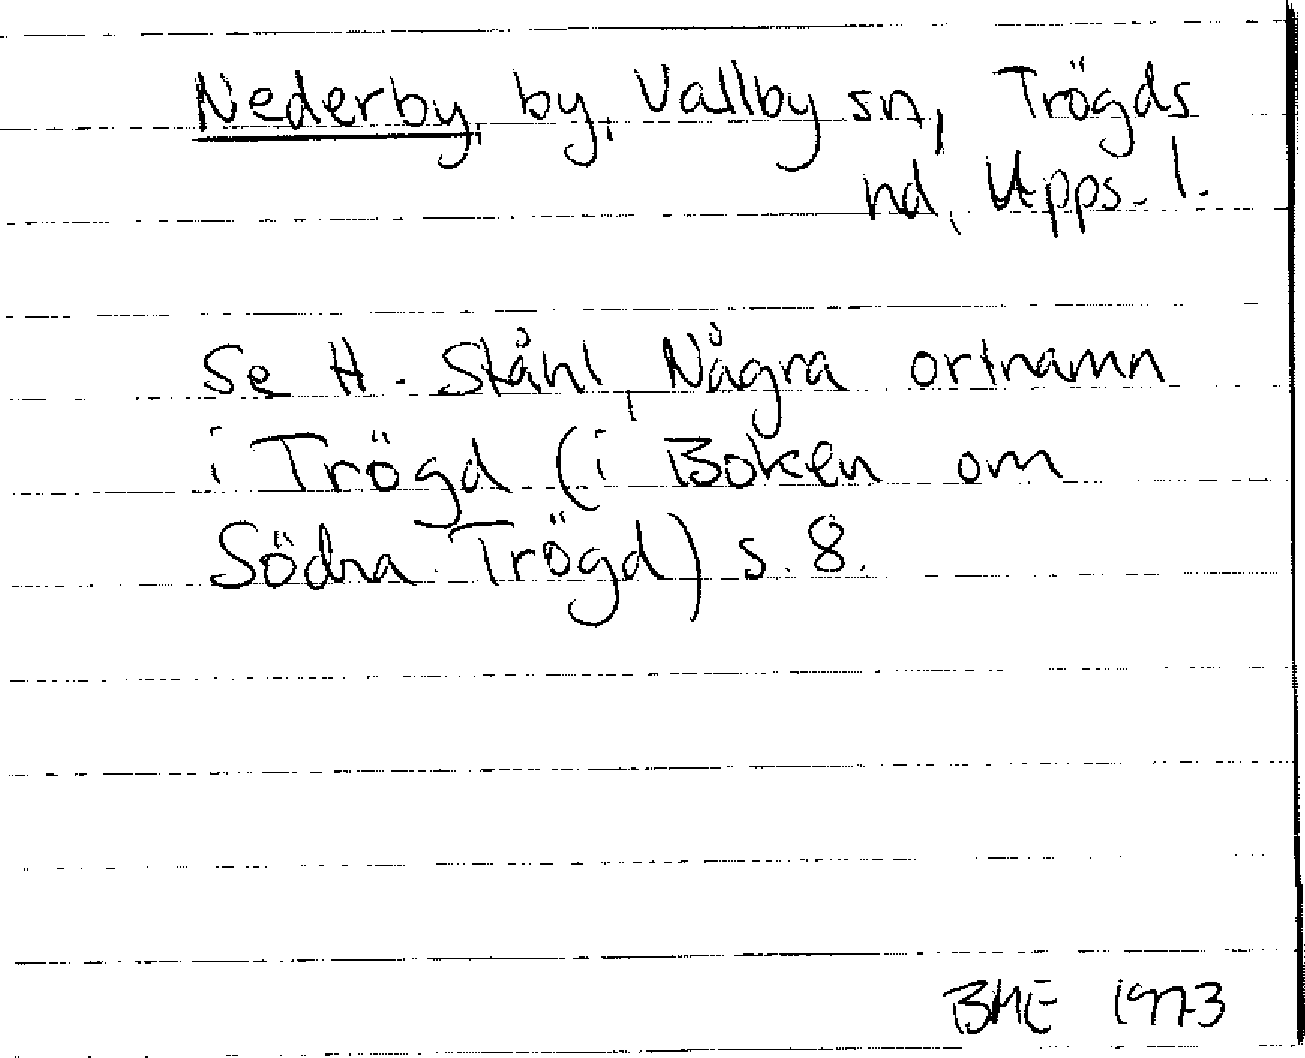 Nederby, by, Vallby sn, Trögds
hd, Upps. l.
Se H. Ståhl, Några ortnamn
i Trögd (i Boken om
Södra Trögd) s. 8.
BME 1973